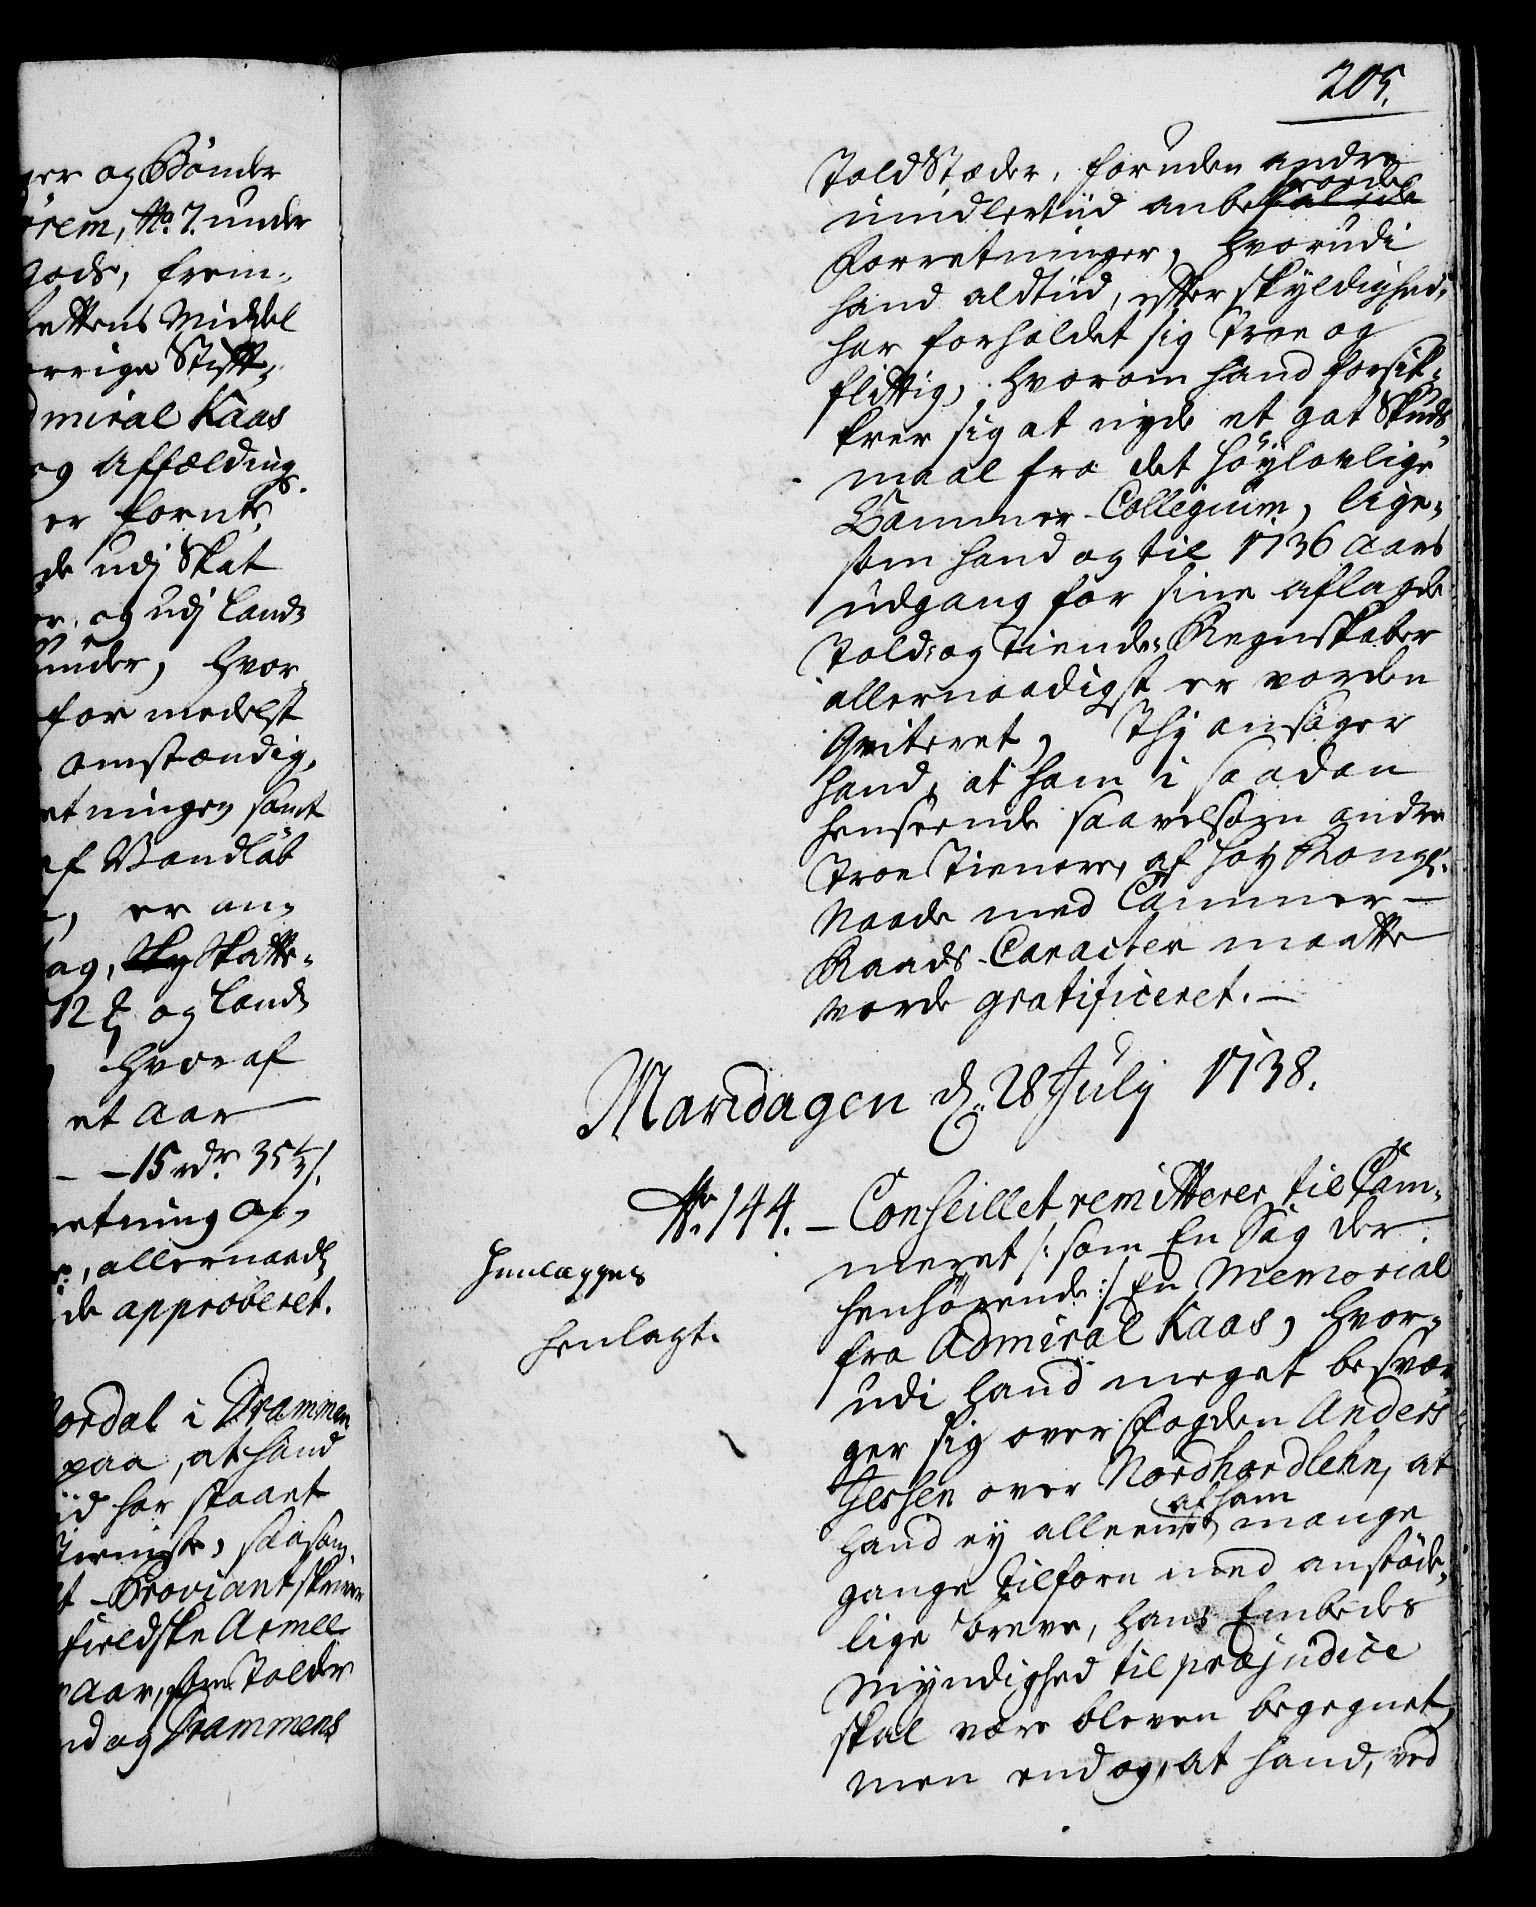 ger og Bönder
örem, No. 7. under
gods, frem-
hettens Middel
orrige Stift-
dmiral Kaas
og Affælding
er fornte
de udj Skat
er, og udj Land-
under, hvor-
for medelst
omstændig,
etningen samt
af Vandløb
er an-
ag, Skatte-
12 ß og Land-
hvoraf
et Aar
- - 15 rdr. 35 1/3 ß.
retning Af-
allernaadl
de approberet.
ordal i Drammen
paa, at hand
iid har staaet
Tieniste, saasom
t - Proviantskriver
fieldske Armee
Aar, Tolder
nd og Drammens
205.
Told Stæder, foruden andre
imidlertiid anbefalede vorde
Forretninger, hvorudi
hand aldtiid, efter skyldighed,
har forholdet sig Troe og
flittig, hvorom hand forsik-
krer sig at nyde et got Skuds-
maal fra det höylovlige
Cammer-Collegium, lige-
som hand og til 1736 Aars
udgang for sine aflagde
Told- og Tiende-Regnskaber
allernaadigst er vorden
Qviteret, Thj ansöger
hand, at ham i saadan
henseende saavelsom andre
Troe Tienere, af höy Kongl:
Naade med Cammer-
Raads-Caracter maatte
vorde gratificeret. -
Mandagen d. 28 July 1738.
No. 144. - Conseillet remitterer til Cam-
meret /: som En Sag der
Henlægges
henhörende :/ En Memorial
henlagt.
fra Admiral Kaas, hvor-
udi hand meget besvæ-
ger sig over Fogden Anders
Jessen over Nordhordlehn, at
hand ey alleene af ham mange
gange tilforn med anstöde-
lige breve, hans Embedes
Myndighed til præjudice
skal være bleven begegnet,
men end og, at hand, ved